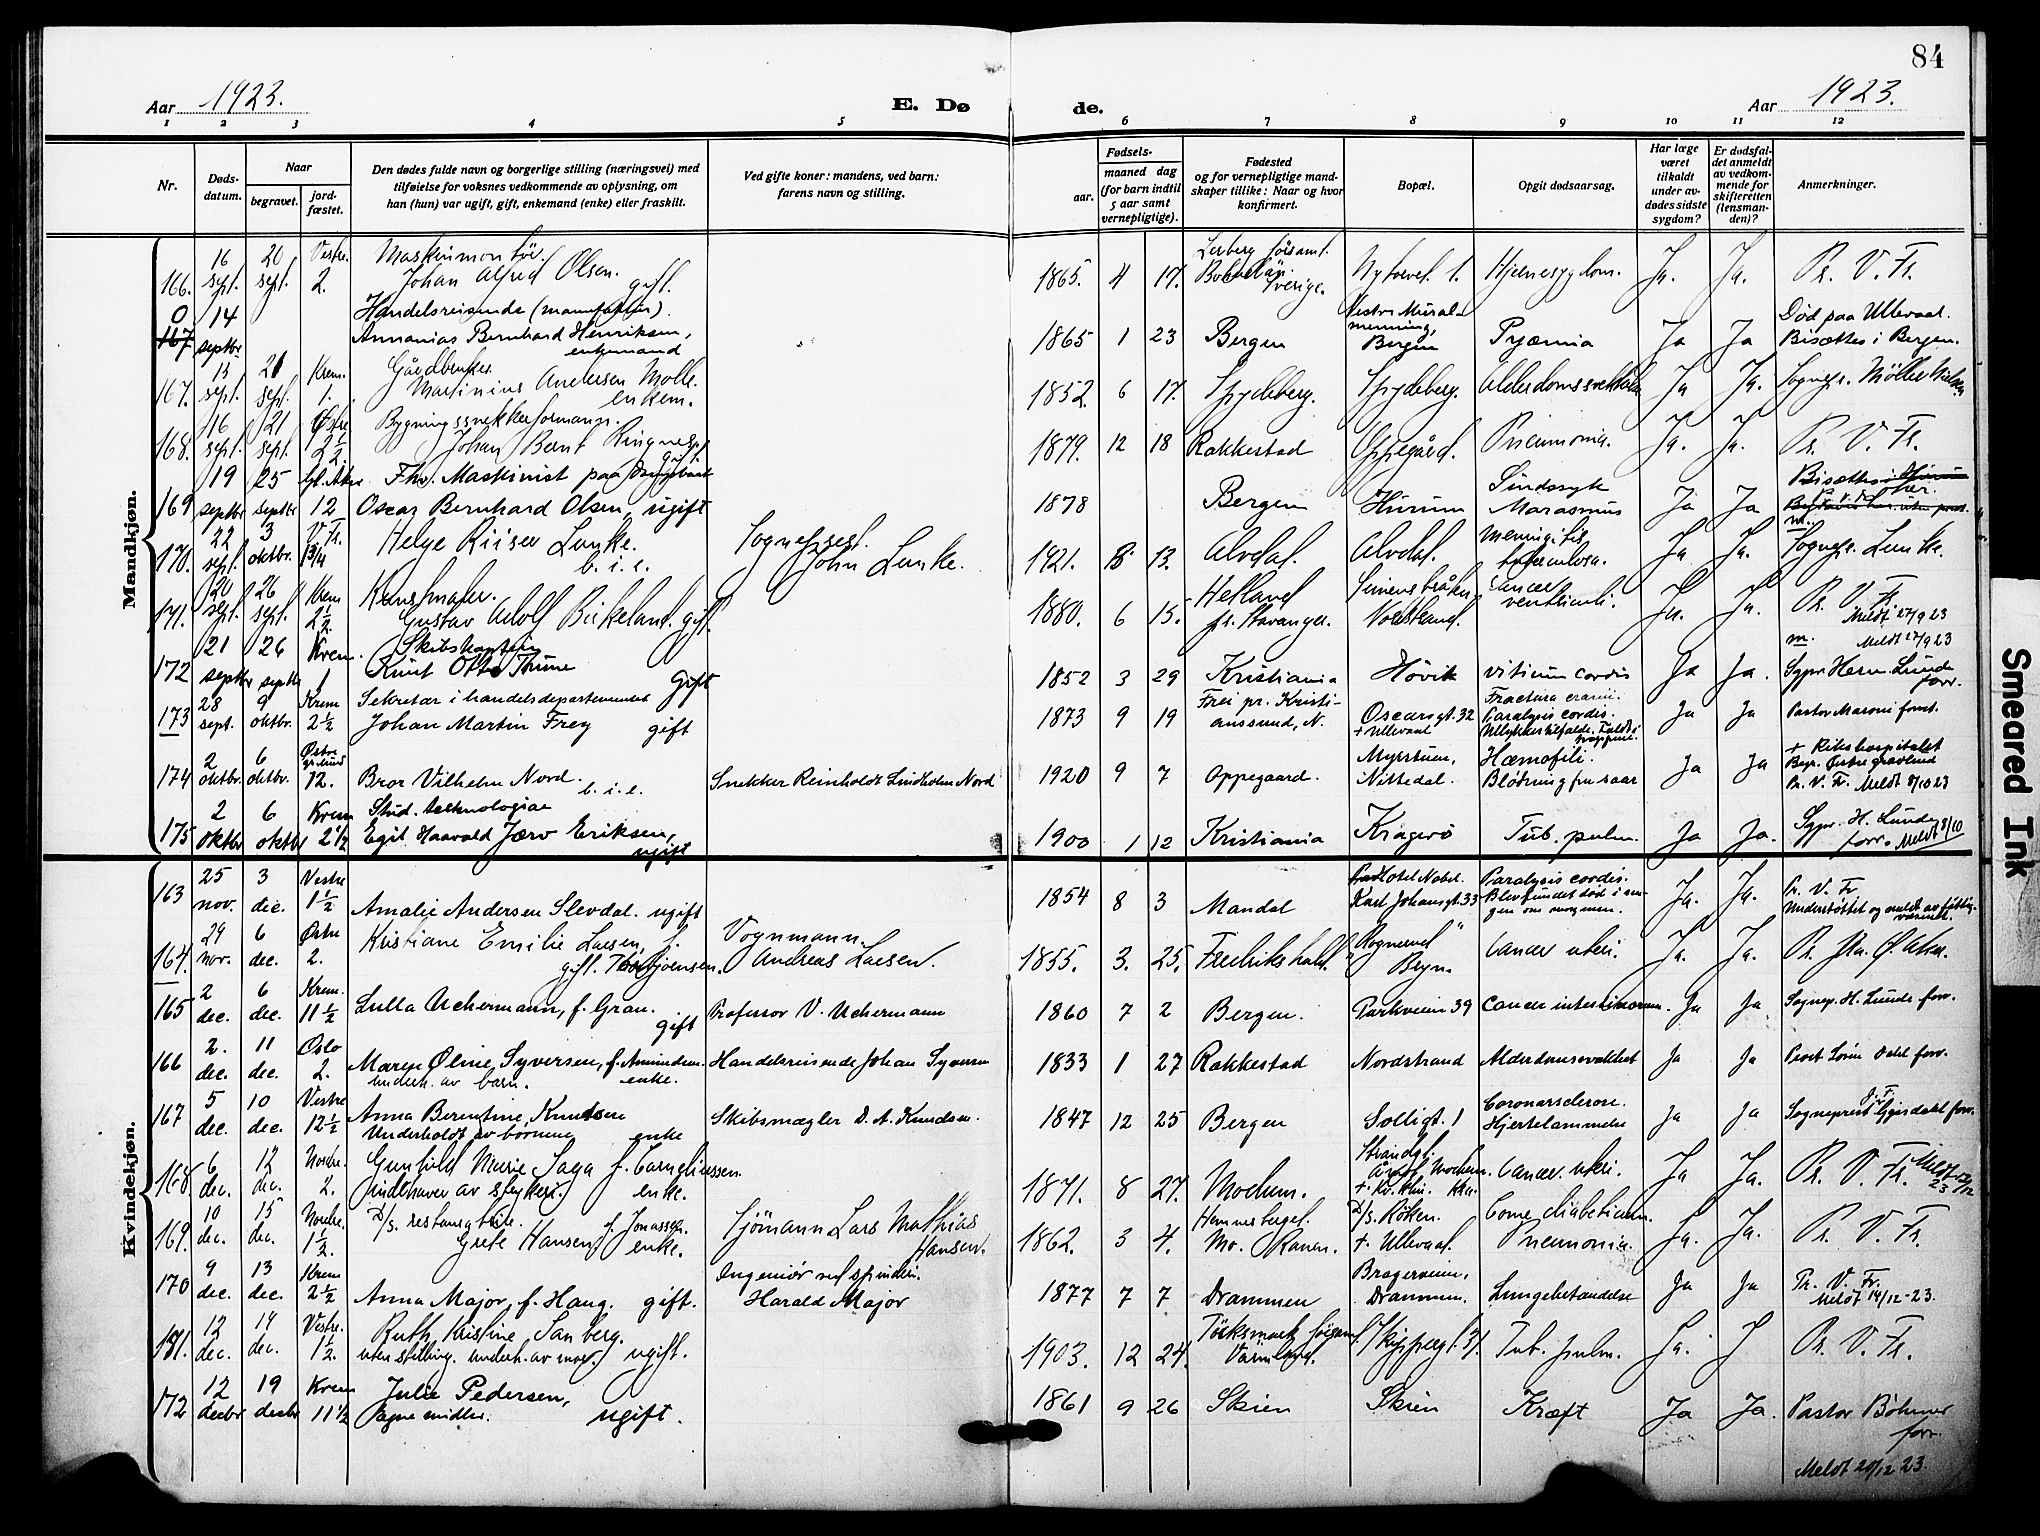 84
Aar 1923.
E. Dø
de.
Aar 1923.
1 2 3 4 5 6 7 8 9 10 11 12
Nr.
Døds-
datum.
Naar
begravet.
jord-
fæstet.
Den dødes fulde navn og borgerlige stilling (næringsvei) med
tilføielse for voksnes vedkommende av oplysning, om
han (hun) var ugift, gift, enkemand (enke) eller fraskilt.
Ved gifte koner: mandens, ved barn:
farens navn og stilling.
Fødsels-
aar.
maaned dag
(for barn indtil
5 aar samt
vernepligtige).
Fødested
og for vernepligtige mand-
skaper tillike: Naar og hvor
konfirmert.
Bopæl.
Opgit dødsaarsag.
Har læge
været
tilkaldt
under av-
dødes sidste
sygdom?
Er dødsfal-
det anmeldt
av vedkom-
mende for
skifteretten
(lensman-
den)?
Anmerkninger.
Mandkjøn.
166. 16 sept. 20 sept. Vestre 2. Maskinmontør. Johan Alfred Olsen. gift. 1865. 4 17. Sverige. Hjernesygdom. Ja. Ja. Pr. V. Fr.
0 167 14 septbr Handelsreisende (manufaktur). Annanias Bernhard Henriksen, enkemand 1865 1 23 Bergen Bergen Pyæmia Ja Ja Død paa Ullevaal. Bisættes i Bergen.
167. 15 sept. 21 sept. Krem. 1. Gårdbruker Martinius Andersen Molle. enkem. 1852. 6 17. Spydeberg. Spydeberg. Ja Ja. Sognepr. Møller
168. 16 sept. 21 sept. Østre 2 1/2 Bygningssnekkerformann. Johan Bernt Ringnes gift. 1879. 12 18 Rakkestad Oppegård. Pneumonia. Ja. Ja. Pr. V. Fr.
169 19 septbr 25 septbr Gl. Aker 12 Fhv. Maskinist paa Oscar Bernhard Olsen, ugift 1878 Bergen Hurum Sindssyk Marasmus Ja Ja Bisættes i her.
170. 22 sept. 3 oktbr. V. Fr. Helge Riiser Lunke. b. i. e. Sogneprest John Lunke. 1921. 13. Alvdal. Alvdal. Meningitis tuberculosa. Ja Ja. Sognepr. Lunke.
171. 20 sept. 26 sept. Krem 2 1/2. Kunstmaler. Gustav Adolf Birkeland. gift. 1880. 6 15. Helland pr. Stavanger. Cancer ventriculi. Ja. Ja. Pr. V. Fr Meldt 27/9 23
172 21 septbr 26 septbr Krem. 1 Skibskaptein Knut Otto Thune gift 1852 3 29 Kristiania Høvik Vitium cordis Ja Ja. m. Meldt 27/9 23 Sypr Herm Lunde forr.
173 28 sept. 9 oktbr. Krem 2 1/2 Sekretær i handelsdepartementet Johan Martin Frey gift 1873 9 19 Frei pr. Kristi-anssund, N. Oscarsgt. 32 + Ullevaal Fractura cranii. Paralysis cordis. Ulykkestilfælde. Ja Ja Pastor Maroni forret.
174 2 oktbr. 6 oktbr. Østre gravlund 12. Bror Vilhelm Nord. b. i. e. Snekker Reinholdt Lindholm Nord 1920 9 7 Oppegaard. Nittedal. Hæmofili. Blødning fra saar Ja Ja + Rikshospitalet Begr. Østre gravlund Pr. V. Fr. Meldt 8/10 23
175 2 oktbr 6 oktbr Krem 2 1/2 Stud. technologiae Egil Haavald Jærv Eriksen, ugift 1900 1 12 Kristiania Kragerø Tub. pulm. Ja Ja. Sypr. H. Lunde forr. Meldt 8/10
Kvindekjøn.
163 25 nov. 3 dec. Vestre 1 1/2 Amalie Andersen Slevdal. ugift 1854 8 3 Mandal Hotel Nobel. Karl Johansgt. 33 Paralysis cordis. Blev fundet død i sen-gen om morgenen. Ja. Ja. Pr. V. Fr Understøttet og anmeldt av fattig-væsenet.
164. 29 nov. 6 dec. Østre 2. Kristiane Emilie Larsen, f. Torbjørnsen. gift. Vognmann Andreas Larsen. 1855. 3. 25. Fredrikshald. Bryn. Cancer uteri. Ja. Ja. Pr.
165 2 dec. 6 dec. Krem. 11 1/2 Lulla Uchermann, f. Gran. gift Professor V. Uchermann 1860 7 2 Bergen. Parkveien 39 Cancer intestinorum. Ja Ja Sognep. H. Lunde forr.
166 2. dec. 11 dec. Oslo 2. Maren Oline Syversen, f. Amundsen. underh. av barn. enke. Handelsreisende Johan Syversen 1833 1 27 Rakkestad Nordstrand Alderdomssvakhet Ja Ja Prost Sørin Dahl forr.
167 5 dec. 10 dec. Vestre 12 1/2 Anna Berentine Knudsen Underholdt av børnene enke Skibsmægler D. A. Knudsen. 1847 12 25 Bergen Solligt. 1 Coronarsclerose. Hjertelammelse Ja Ja Sogneprest Gjisdahl forr.
168. 6 dec. 12 dec. Nordre. 2. Gunhild Marie Saga f. Corneliussen. Indehaver av strykeri. enke. 1871. 8 27. Modum. Strandgt. Cancer uteri. Ja Ja. Pr. V. Fr. Meldt 12/12 23
169. 10 dec. 15 dec. Nordre. 1 1/2. D/s. restauratrise. Grete Hansen, f. Jonassen. enke. Sjømann Lars Mathias Hansen. 1862. 3 4. Hemnesberget. Mo. Ranen. D/s. Røken. + Ullevaal. Coma diabeticum. Pneumonia. Ja. Ja. Pr. V. Fr.
170 9 dec. 13 dec. Krem 2 1/2 Anna Major, f. Haug. gift. Ingeniør ved spinderi. Harald Major 1877 7 7 Drammen Bragerveien, Drammen. Lungebetændelse Ja Ja Pr. V. Fr. Meldt 14/12-23.
171. 12 dec. 14 dec. Vestre. 1 1/2. Ruth Kristine Sanberg. uten stilling. underh. av mor. ugift. 1903. 12 24. Värmland. Tub. pulm. Ja. J Pr. V. Fr.
172 12 decbr 19 decbr Krem 11 1/2 Julie Pedersen, Egne midler. ugift. 1861 9 26 Skien Skien Kræft Ja Ja. Pastor Böhmer forr.
Meldt 20/12 23.
Smeared Ink